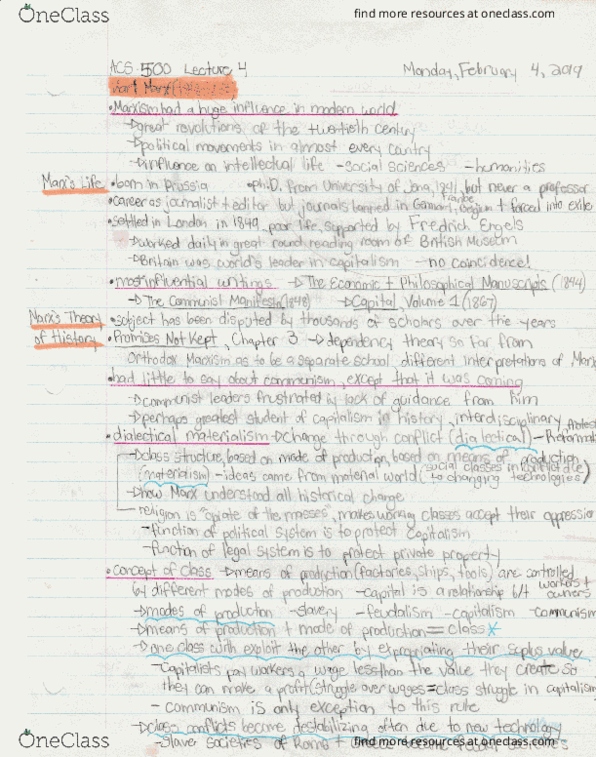 OneClass
find more resources at oneclass.com
ACS 500 Lecture 4
Monday, February 4, 2019
Karl Marx
•Marxism had a huge influence in modern world
→great revolutions of the twentieth century
→political movements in almost every country
→influence on intellectual life -social sciences -humanities
Marx's Life •born in Prussia •ph.D. from University of Jena, 1841, but never a professor
•career as journalist + editor but journals banned in Germany, France, Belgium + forced into exile
•settled in London in 1849, poor life, supported by Fredrich Engels
→worked daily in great round reading room of British Museum
→Britain was world's leader in capitalism -no coincidence!
•most influential writings →The Economic + Philosophical Manuscripts (1844)
→The Communist Manifesto (1848) →Capital, Volume 1 (1867)
Marx's Theory of History
•subject has been disputed by thousands of scholars over the years
•Promises Not Kept, Chapter 3 →dependency theory so far from
Orthodox Marxism as to be a separate school, different interpretations of
•had little to say about communism, except that it was coming
→communist leaders frustrated is lack of guidance from him
→perhaps greatest student of capitalism in history, interdisciplinary
•dialectical materialism →change through conflict (dialectical)
→class structure, based on mode of production, based on means of production
(materialism) -ideas came from material world (social classes in conflict due to changing technologies)
→how Marx understood all historical change
-religion is "opiate of the masses", makes working classes accept their
-function of political system is to protect capitalism
-function of legal system is to protect private property
•concept of class →means of production (factories, ships, tools) are controlled
by different modes of production -capital is a relationship b/t workers + owners
→modes of production -slavery -feudalism -capitalism -communism
→means of production + mode of production = class*
→one class with exploit the other by expropriating their suplus value
-Capitalists pay workers a wage less than the value they create so
they can make a profit (struggle over wages = class struggle in capitalism
-communism is only exception to this rule
→class conflicts become destabilizing often due to new technology
-Slave societies of Rome +
OneClass
find more resources at oneclass.com